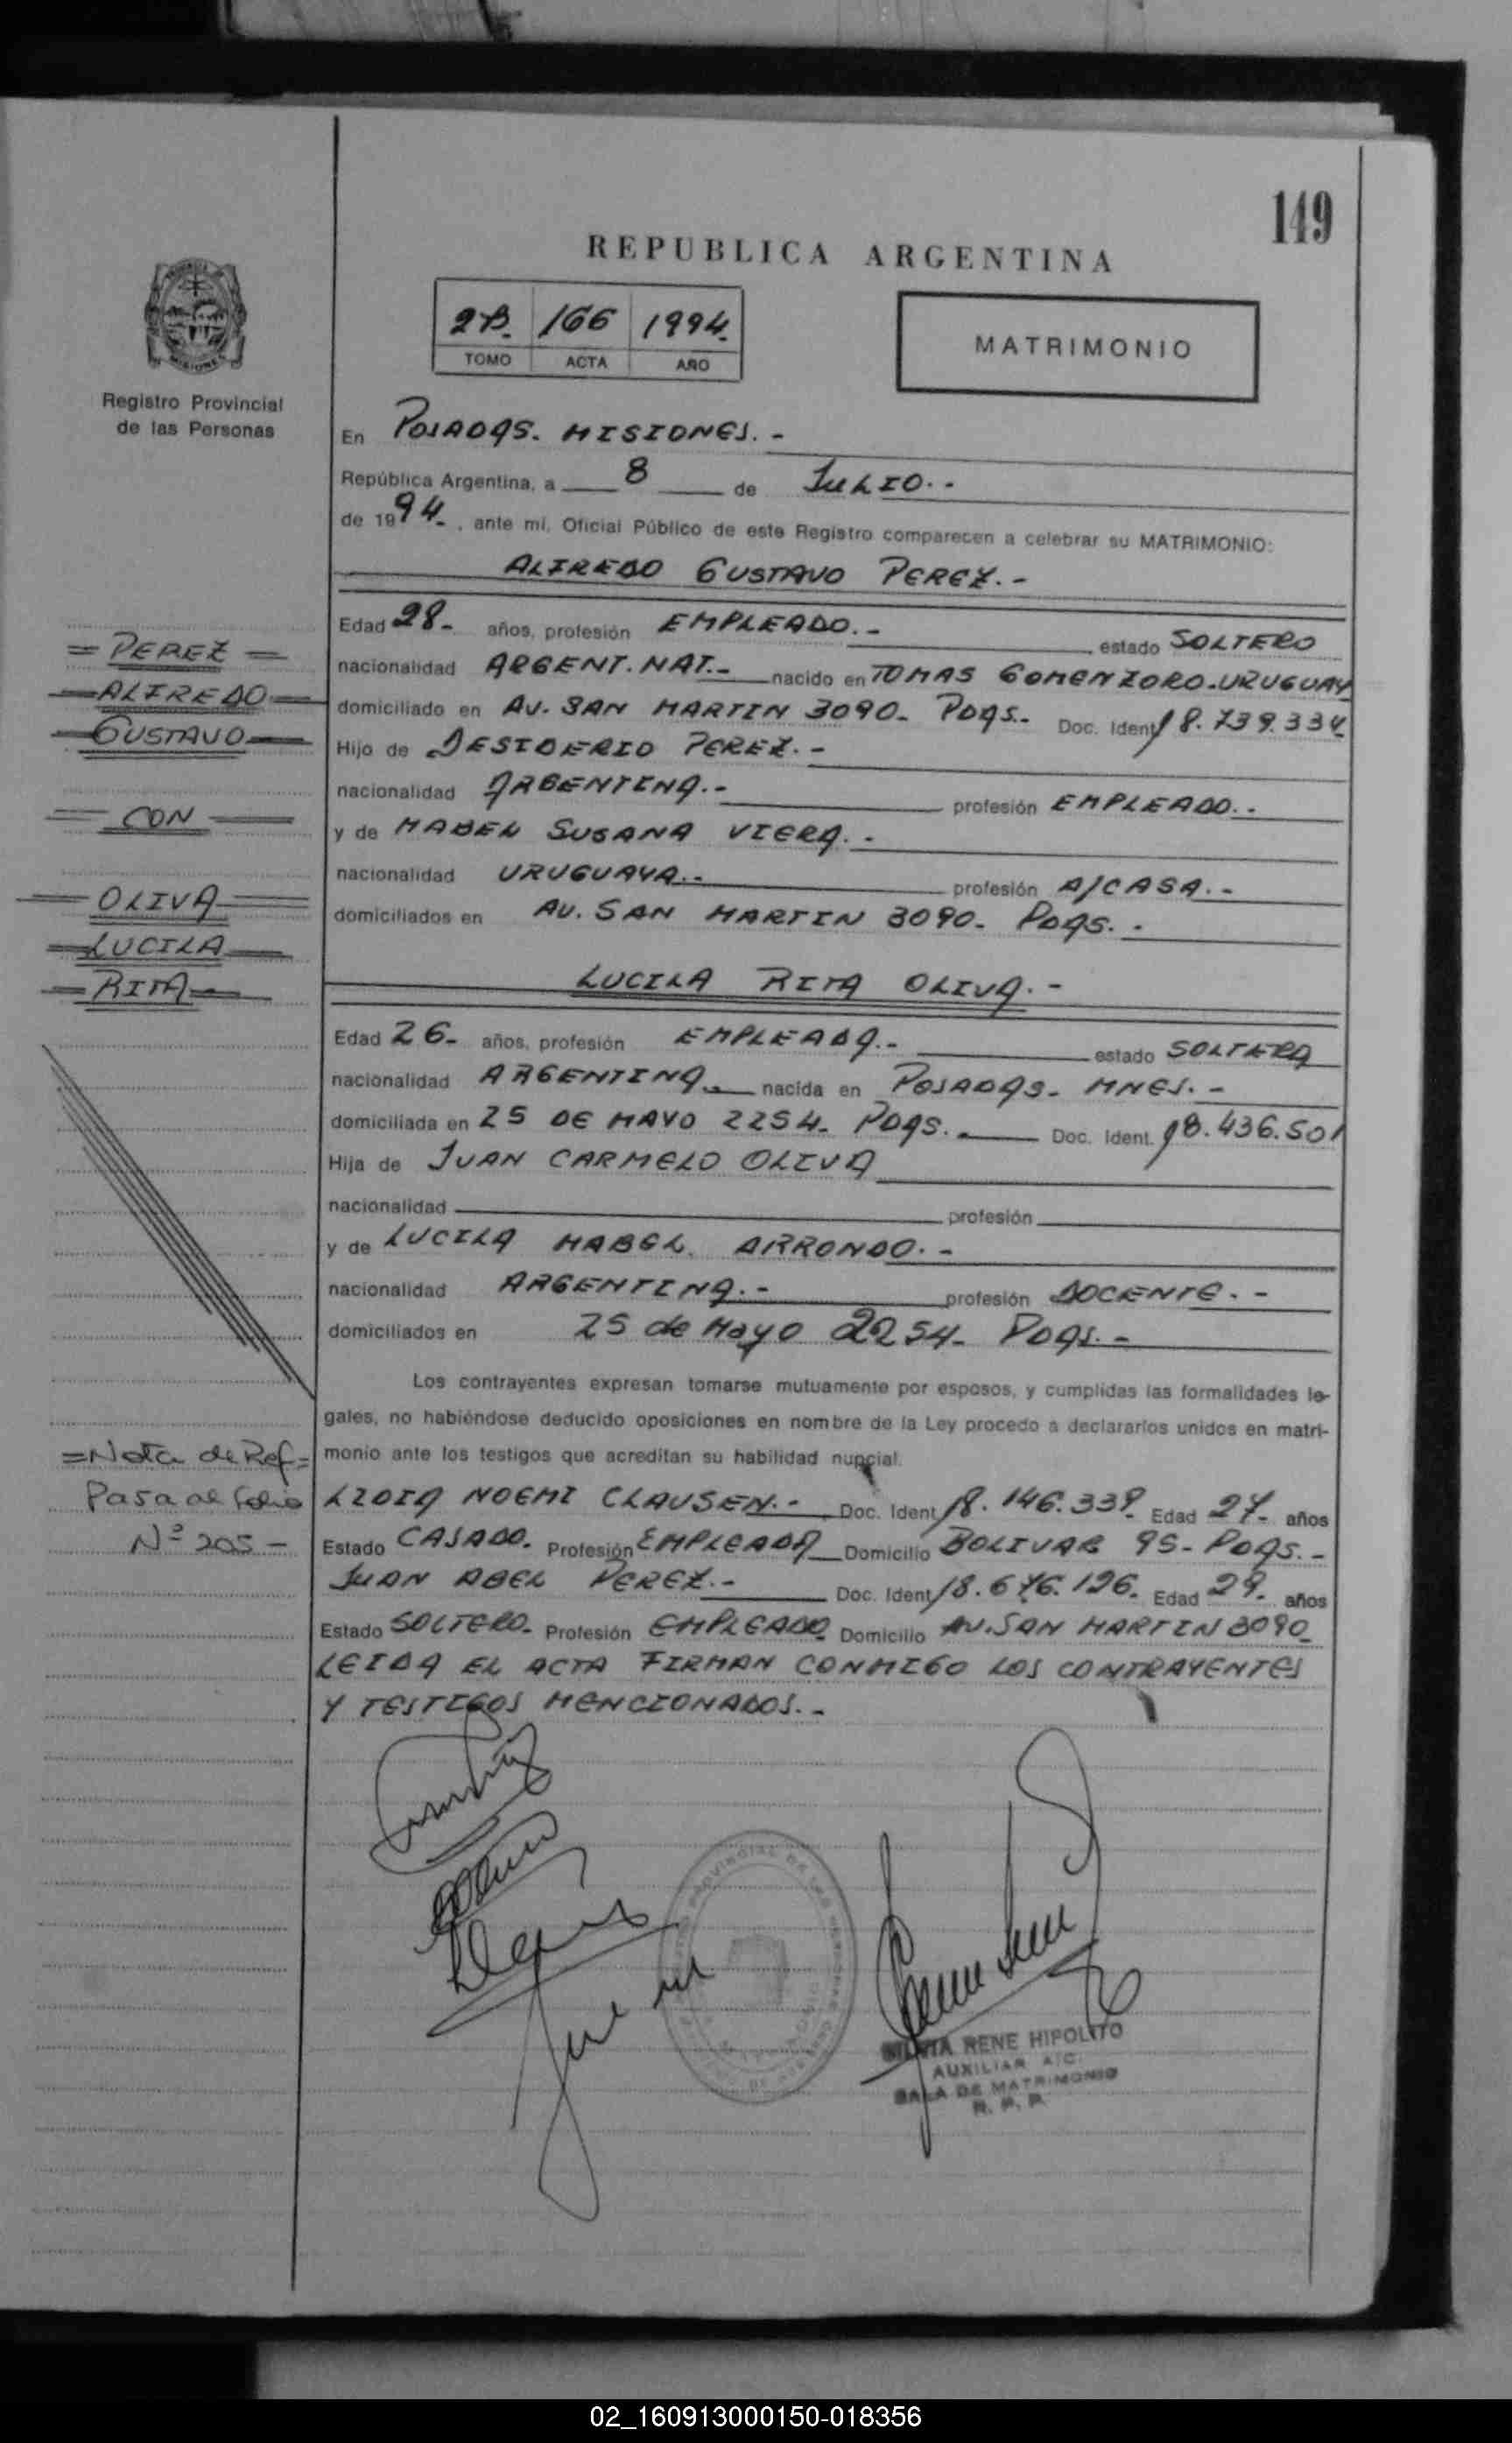 149
REPUBLICA ARGENTINA
2B. 166 1994.
TOMO ACTA AÑO
MATRIMONIO
MISIONES
Registro Provincial
de las Personas
En POSADAS. MISIONES.-
República Argentina, a 8 de JULIO.-
de 1994.-, ante mi, Oficial Público de este Registro comparecen a celebrar su MATRIMONIO:
ALFREDO GUSTAVO PEREZ.-
Edad 28- años, profesión EMPLEADO.- estado SOLTERO
nacionalidad ARGENT. NAT.- nacido en TOMAS GOMENZORO-URUGUAY
domiciliado en AV. SAN MARTIN 3090- PDAS.- Doc. Ident. 18.739.334
Hijo de DESIDERIO PEREZ.-
nacionalidad ARGENTINA.- profesión EMPLEADO.-
y de MABEL SUSANA VIERA.-
nacionalidad URUGUAYA.- profesión A/CASA.-
domiciliados en AV. SAN MARTIN 3090- PDAS.-
= PEREZ =
= ALFREDO =
= GUSTAVO =
= CON =
= OLIVA =
= LUCILA =
= RITA =
LUCILA RITA OLIVA.-
Edad 26- años, profesión EMPLEADA.- estado SOLTERA
nacionalidad ARGENTINA.- nacida en POSADAS- MNES.-
domiciliada en 25 DE MAYO 2254- PDAS.- Doc. Ident. 18.436.501
Hija de JUAN CARMELO OLIVA
nacionalidad profesión
y de LUCILA MABEL ARRONDO.-
nacionalidad ARGENTINA.- profesión DOCENTE.-
domiciliados en 25 de Mayo 2254- PDAS.-
Los contrayentes expresan tomarse mutuamente por esposos, y cumplidas las formalidades le-
gales, no habiéndose deducido oposiciones en nombre de la Ley procedo a declararlos unidos en matri-
monio ante los testigos que acreditan su habilidad nupcial.
= Nota de Ref =
Pasa al folio
Nº 205 -
LIDIA NOEMI CLAUSEN.- Doc. Ident. 18.146.339- Edad 27- años
Estado CASADO- Profesión EMPLEADA Domicilio BOLIVAR 95- PDAS.-
JUAN ABEL PEREZ.- Doc. Ident. 18.676.126- Edad 29- años
Estado SOLTERO- Profesión EMPLEADO Domicilio AV. SAN MARTIN 3090
LEIDA EL ACTA FIRMAN CONMIGO LOS CONTRAYENTES
Y TESTIGOS MENCIONADOS.-
RENE HIPOLITO
AUXILIAR A/C.
SALA DE MATRIMONIO
R. P. P.
02_160913000150-018356